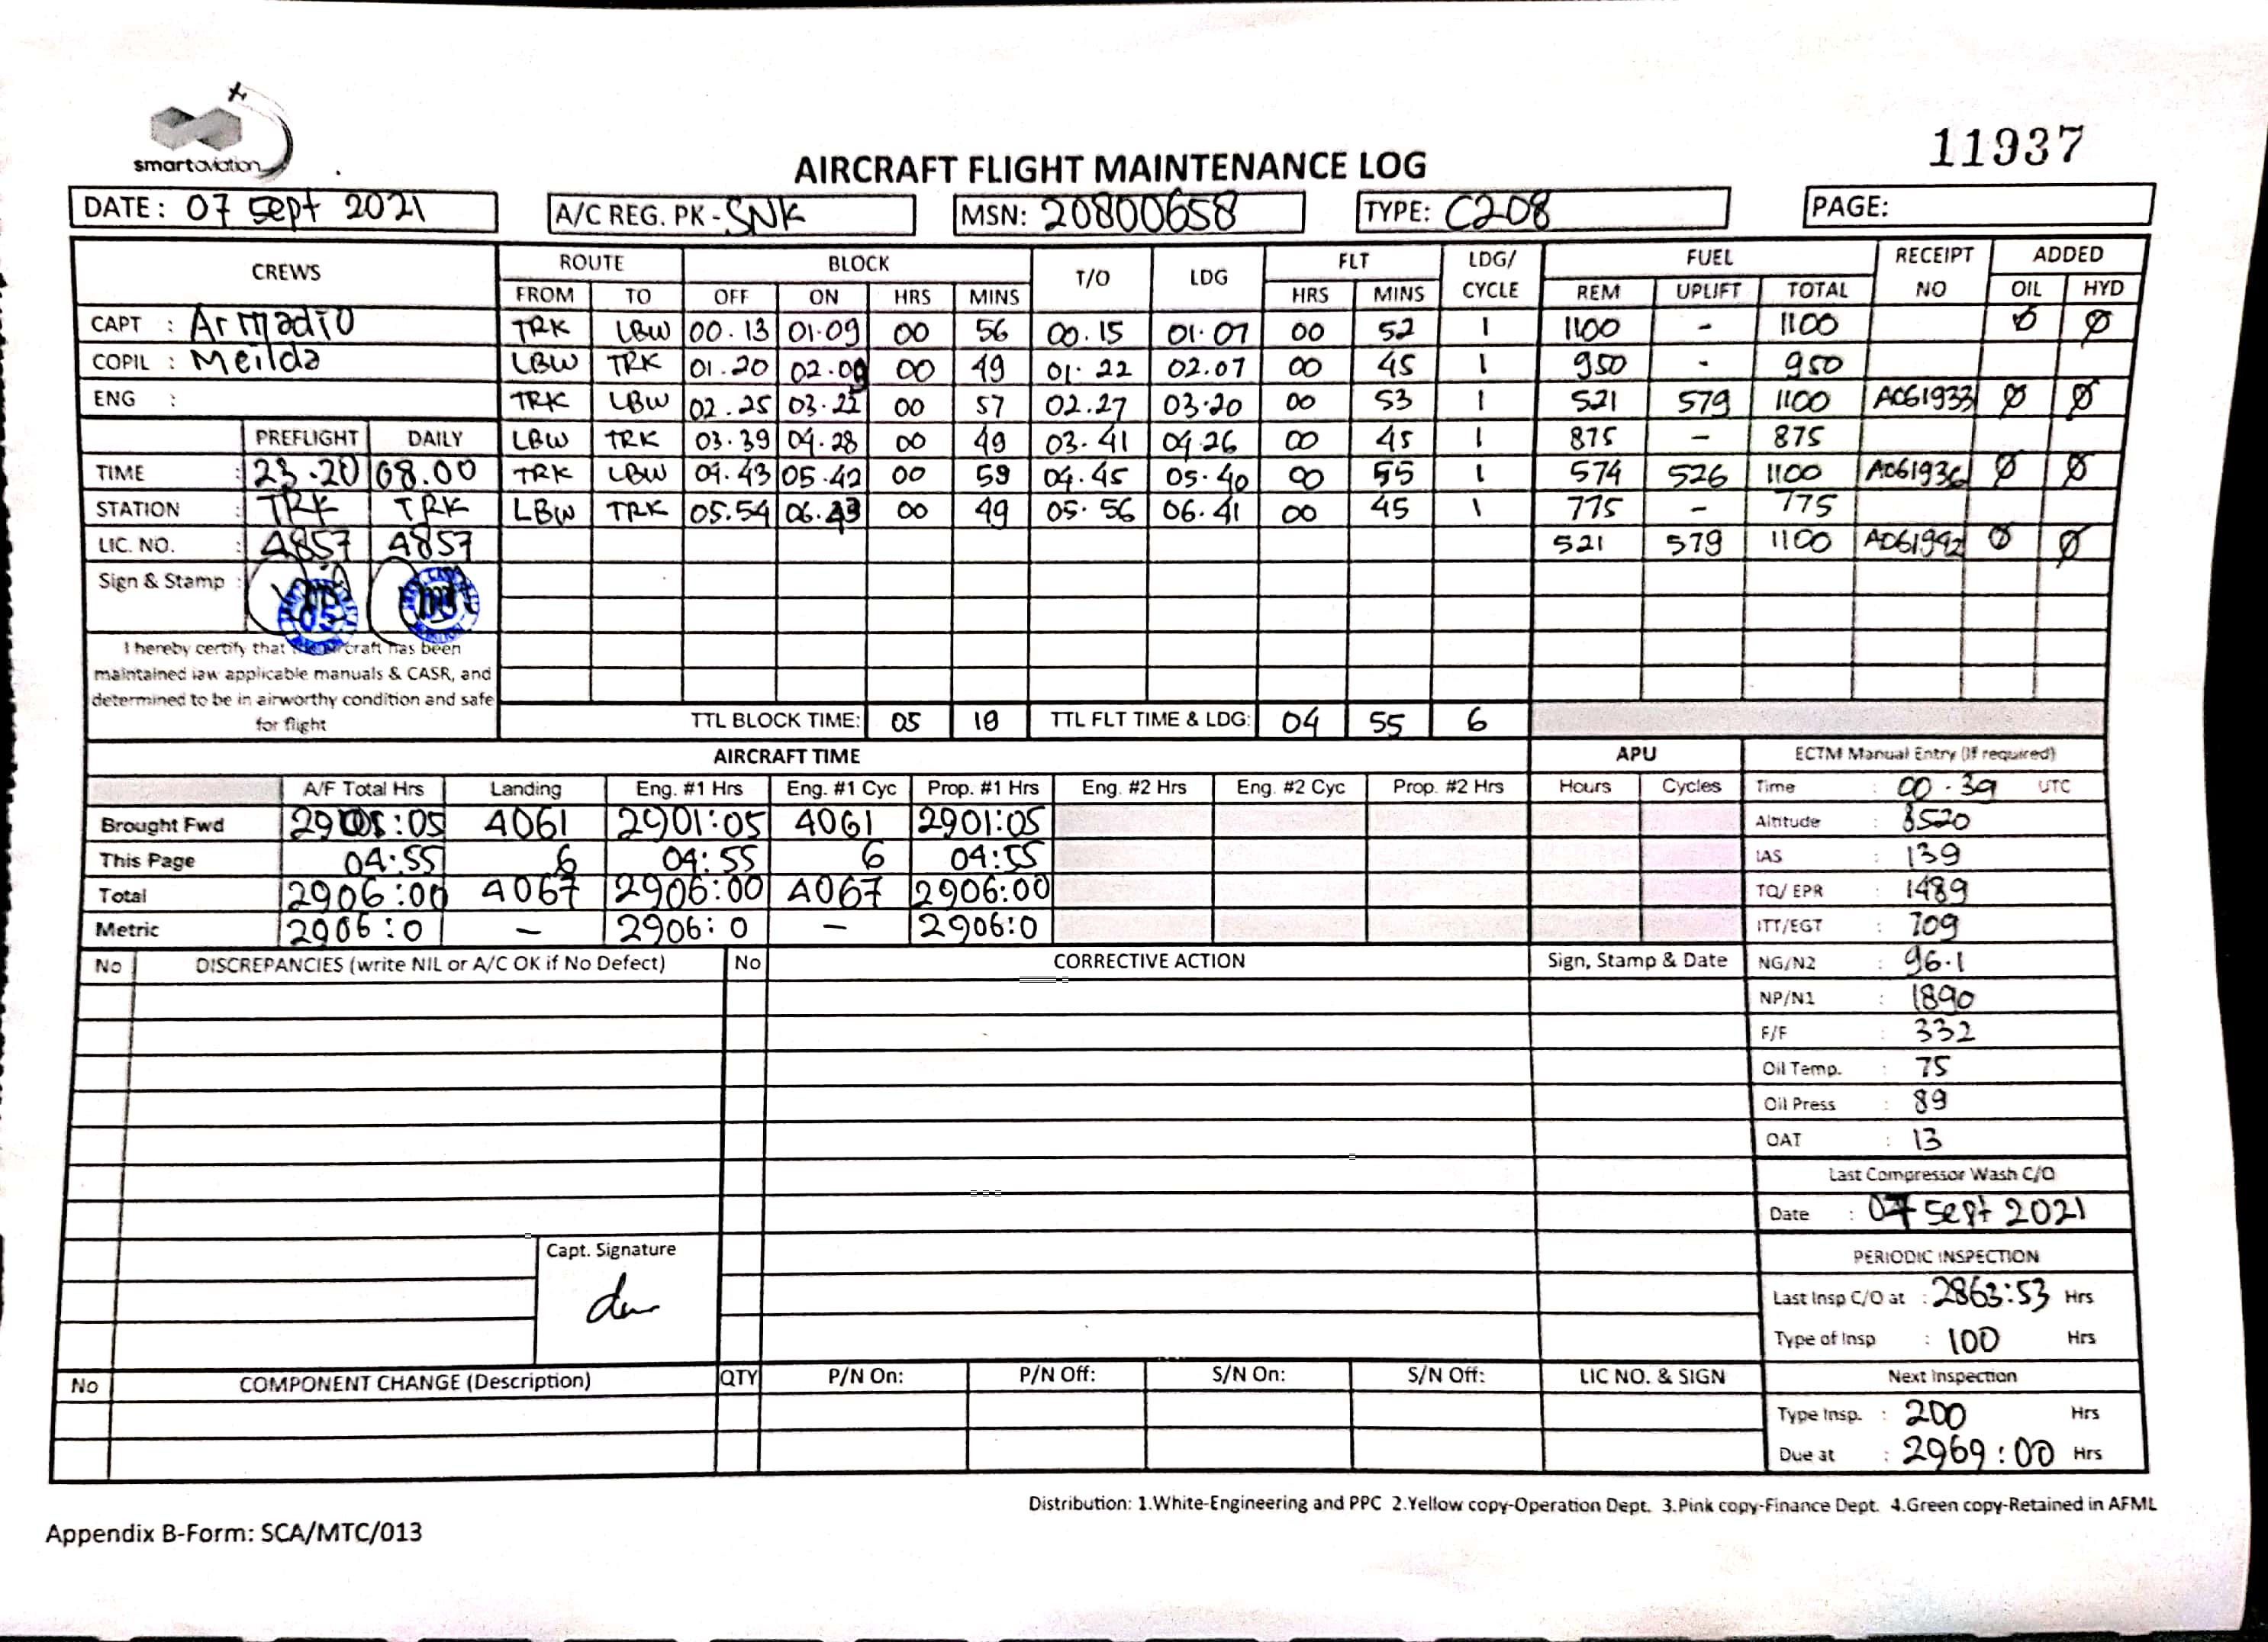 smartaviation
11937
AIRCRAFT FLIGHT MAINTENANCE LOG
DATE: 07 Sept 2021 A/C REG. PK - SNK MSN: 20800658 TYPE: C208 PAGE:
CREWS ROUTE BLOCK T/O LDG FLT LDG/ CYCLE FUEL RECEIPT NO ADDED
FROM TO OFF ON HRS MINS HRS MINS REM UPLIFT TOTAL OIL HYD
CAPT : Armadio TRK LBW 00.13 01.09 00 56 00.15 01.07 00 52 1 1100 - 1100 Ø Ø
COPIL : Meilda LBW TRK 01.20 02.09 00 49 01.22 02.07 00 45 1 950 - 950
ENG : TRK LBW 02.25 03.22 00 57 02.27 03.20 00 53 1 521 579 1100 A061933 Ø Ø
PREFLIGHT DAILY LBW TRK 03.39 04.28 00 49 03.41 04.26 00 45 1 875 - 875
TIME : 23.20 08.00 TRK LBW 04.43 05.42 00 59 04.45 05.40 00 55 1 574 526 1100 A061936 Ø Ø
STATION : TRK TRK LBW TRK 05.54 06.43 00 49 05.56 06.41 00 45 1 775 - 775
LIC. NO. : 4857 4857 521 579 1100 A061942 Ø Ø
Sign & Stamp :
I hereby certify that the aircraft has been
maintained iaw applicable manuals & CASR, and
determined to be in airworthy condition and safe
for flight
TTL BLOCK TIME: 05 19 TTL FLT TIME & LDG: 04 55 6
AIRCRAFT TIME APU ECTM Manual Entry (If required)
A/F Total Hrs Landing Eng. #1 Hrs Eng. #1 Cyc Prop. #1 Hrs Eng. #2 Hrs Eng. #2 Cyc Prop. #2 Hrs Hours Cycles Time : 00.39 UTC
Brought Fwd 2901:05 4061 2901:05 4061 2901:05 Altitude : 8520
This Page 04:55 6 04:55 6 04:55 IAS : 139
Total 2906:00 4067 2906:00 4067 2906:00 TQ/ EPR : 1489
Metric 2906:0 - 2906:0 - 2906:0 ITT/EGT : 709
No DISCREPANCIES (write NIL or A/C OK if No Defect) No CORRECTIVE ACTION Sign, Stamp & Date NG/N2 : 96.1
NP/N1 : 1890
F/F : 332
Oil Temp. : 75
Oil Press : 89
OAT : 13
Last Compressor Wash C/O
Date : 07 Sept 2021
Capt. Signature
PERIODIC INSPECTION
Last Insp C/O at : 2863:53 Hrs
Type of Insp : 100 Hrs
No COMPONENT CHANGE (Description) QTY P/N On: P/N Off: S/N On: S/N Off: LIC NO. & SIGN Next Inspection
Type Insp. : 200 Hrs
Due at : 2969:00 Hrs
Distribution: 1.White-Engineering and PPC 2.Yellow copy-Operation Dept. 3.Pink copy-Finance Dept. 4.Green copy-Retained in AFML
Appendix B-Form: SCA/MTC/013